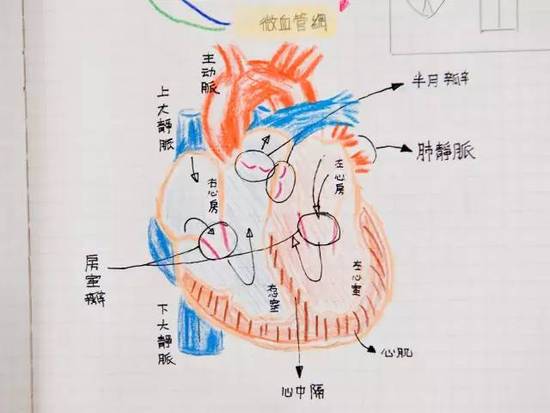 微血管網
主动脈
上大靜脈
半月瓣
肺靜脈
右心房
左心房
房室瓣
右心室
左心室
下大靜脈
心肌
心中隔